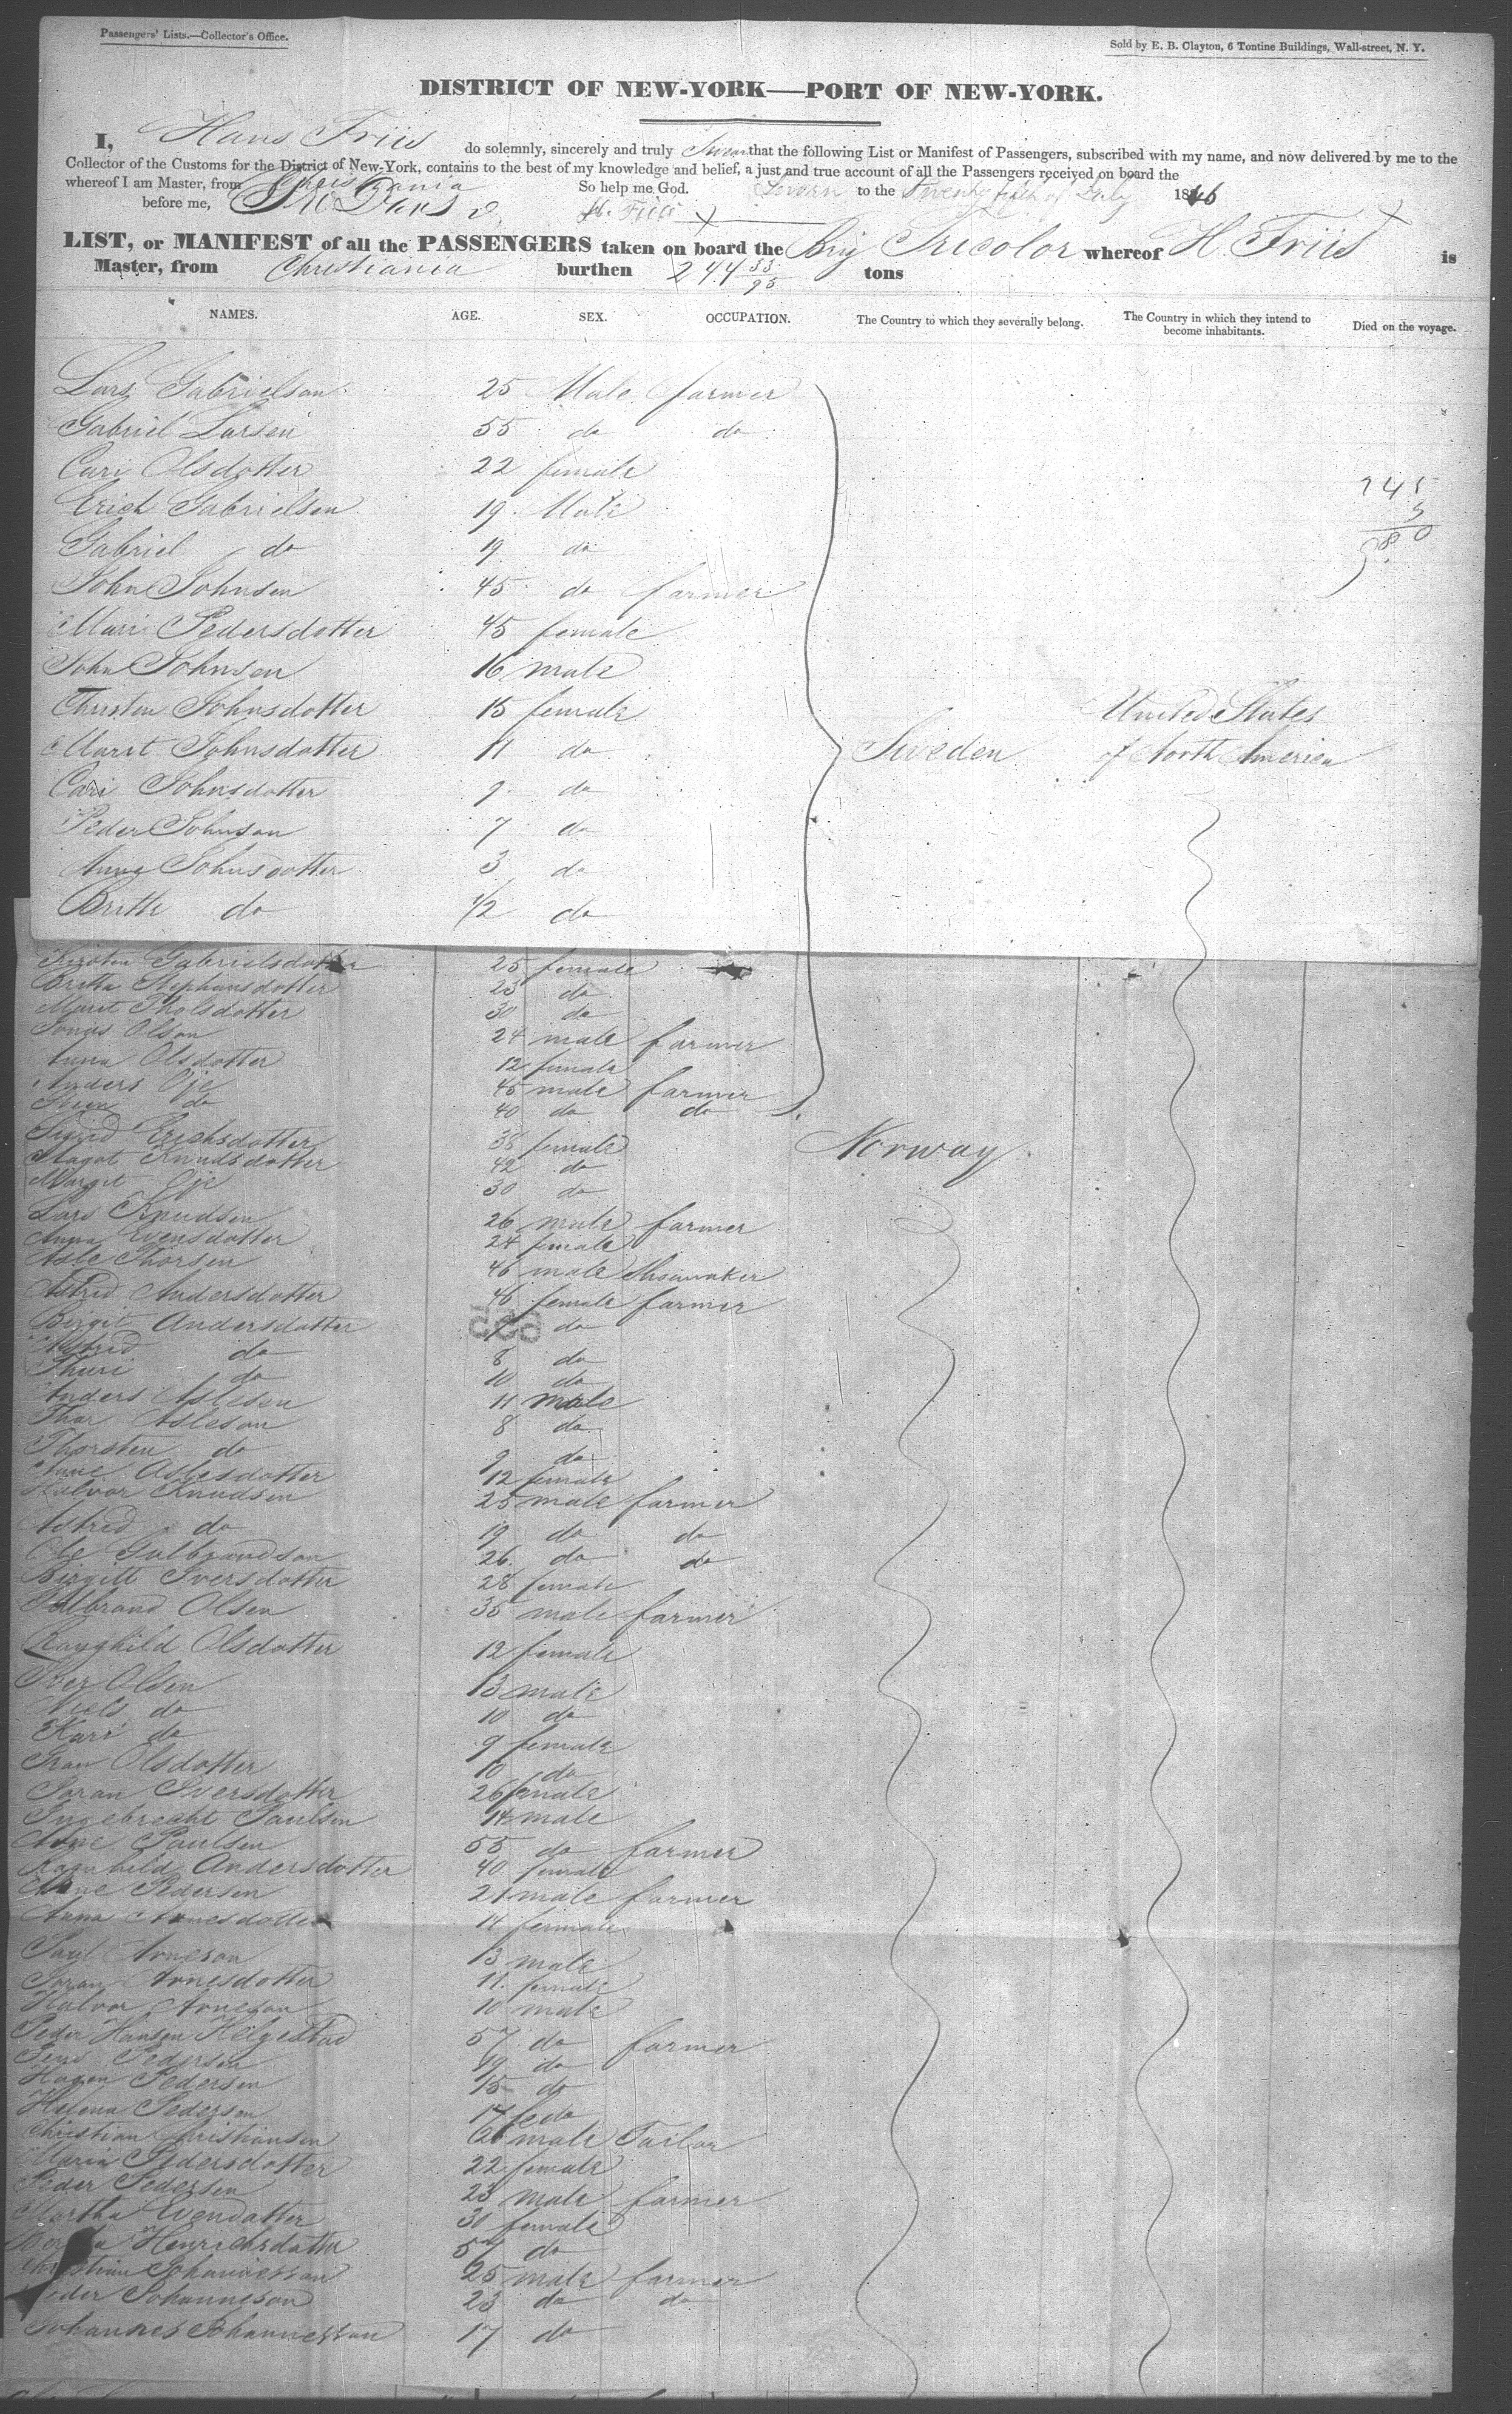 Passengers' Lists.—Collector's Office.
Sold by E. B. Clayton, 6 Tontine Buildings, Wall-street, N. Y.
DISTRICT OF NEW-YORK—PORT OF NEW-YORK.
I, Hans Friis do solemnly, sincerely and truly Swear that the following List or Manifest of Passengers, subscribed with my name, and now delivered by me to the
Collector of the Customs for the District of New-York, contains to the best of my knowledge and belief, a just and true account of all the Passengers received on board the
whereof I am Master, from Christiania So help me God. Sworn to the Twenty fifth of July 1846
before me, H. Friis
LIST, or MANIFEST of all the PASSENGERS taken on board the Brig Tricolor whereof H. Friis is
Master, from Christiania burthen 244 53/95 tons
NAMES. AGE. SEX. OCCUPATION. The Country to which they severally belong. The Country in which they intend to become inhabitants. Died on the voyage.
Lars Gabrielson 25 Male farmer
Gabriel Larsen 55 do do
Cari Olsdotter 22 female
Erich Gabrielsen 19 Male
Gabriel do 19 do
John Johnsen 45 do farmer
Mari Pedersdotter 45 female
John Johnsen 16 male
Christin Johnsdotter 15 female
Marit Johnsdotter 11 do
Sweden
United States
of North America
Cari Johnsdotter 9 do
Peder Johnson 7 do
Anna Johnsdotter 3 do
Britte do 1/2 do
Kirsten Gabrielsdotter 25 female
Britta Stephansdotter 23 do
Marit Tholsdotter 30 do
Jonas Olson 24 male farmer
Anna Olsdotter 12 female
Anders Oje 45 male farmer
do 40 do do
Sigrid Erichsdotter 38 female
Norway
Magot Knudsdotter 42 do
Margit Oje 30 do
Lars Knudsen 26 male farmer
Anna Evensdotter 24 female
Asle Thorsen 46 male Shoemaker
Astrid Andersdotter 46 female farmer
Birgit Andersdatter do
Astrid do 8 do
Thuri do 10 do
Anders Aslesen 11 male
Thor Asleson 8 do
Thorsten do 9 do
Anne Aslesdotter 12 female
Halvor Knudsen 25 male farmer
Astrid do 19 do do
Ole Gulbrandson 26 do do
Birgitt Iversdotter 28 female
Gulbrand Olsen 35 male farmer
Raughild Olsdotter 12 female
Iver Olsen 13 male
Niels do 10 do
Kari do 9 female
Olsdotter 10 do
Joran Iversdotter 26 female
Ingebrecht Paulsen 14 male
Arne Paulsen 55 do farmer
Ragnhild Andersdotter 40 female
Arne Pedersen 21 male farmer
Anna Arnesdotter 14 female
Paul Arneson 13 male
Joran Arnesdotter 11 female
Halvor Arneson 10 male
Peder Hansen Helgestad 57 do farmer
Pedersen 19 do
Hagen Pedersen 15 do
Helena Pedersen 17 fe do
Christian Christiansen 26 male Tailor
Maria Pedersdotter 22 female
Peder Pedersen 23 male farmer
Martha Evendatter 30 female
Henrichsdatter 57 do
Christian Johannesson 25 male farmer
Peder Johanneson 23 do do
Johannes Johannesson 17 do